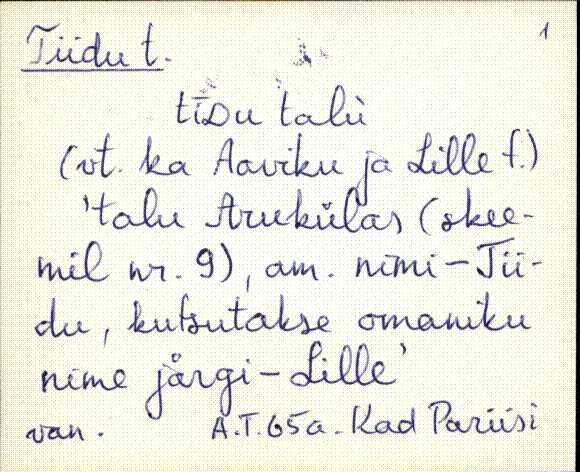 1
Tiidu t.
tīDu talu
(vt. ka Aaviku ja Lille t.)
'talu Arukülas (skee-
mil nr. 9), am. nimi - Tii-
du, kutsutakse omaniku
nime järgi - Lille'
van. A.T. 65 a. Kad Pariisi